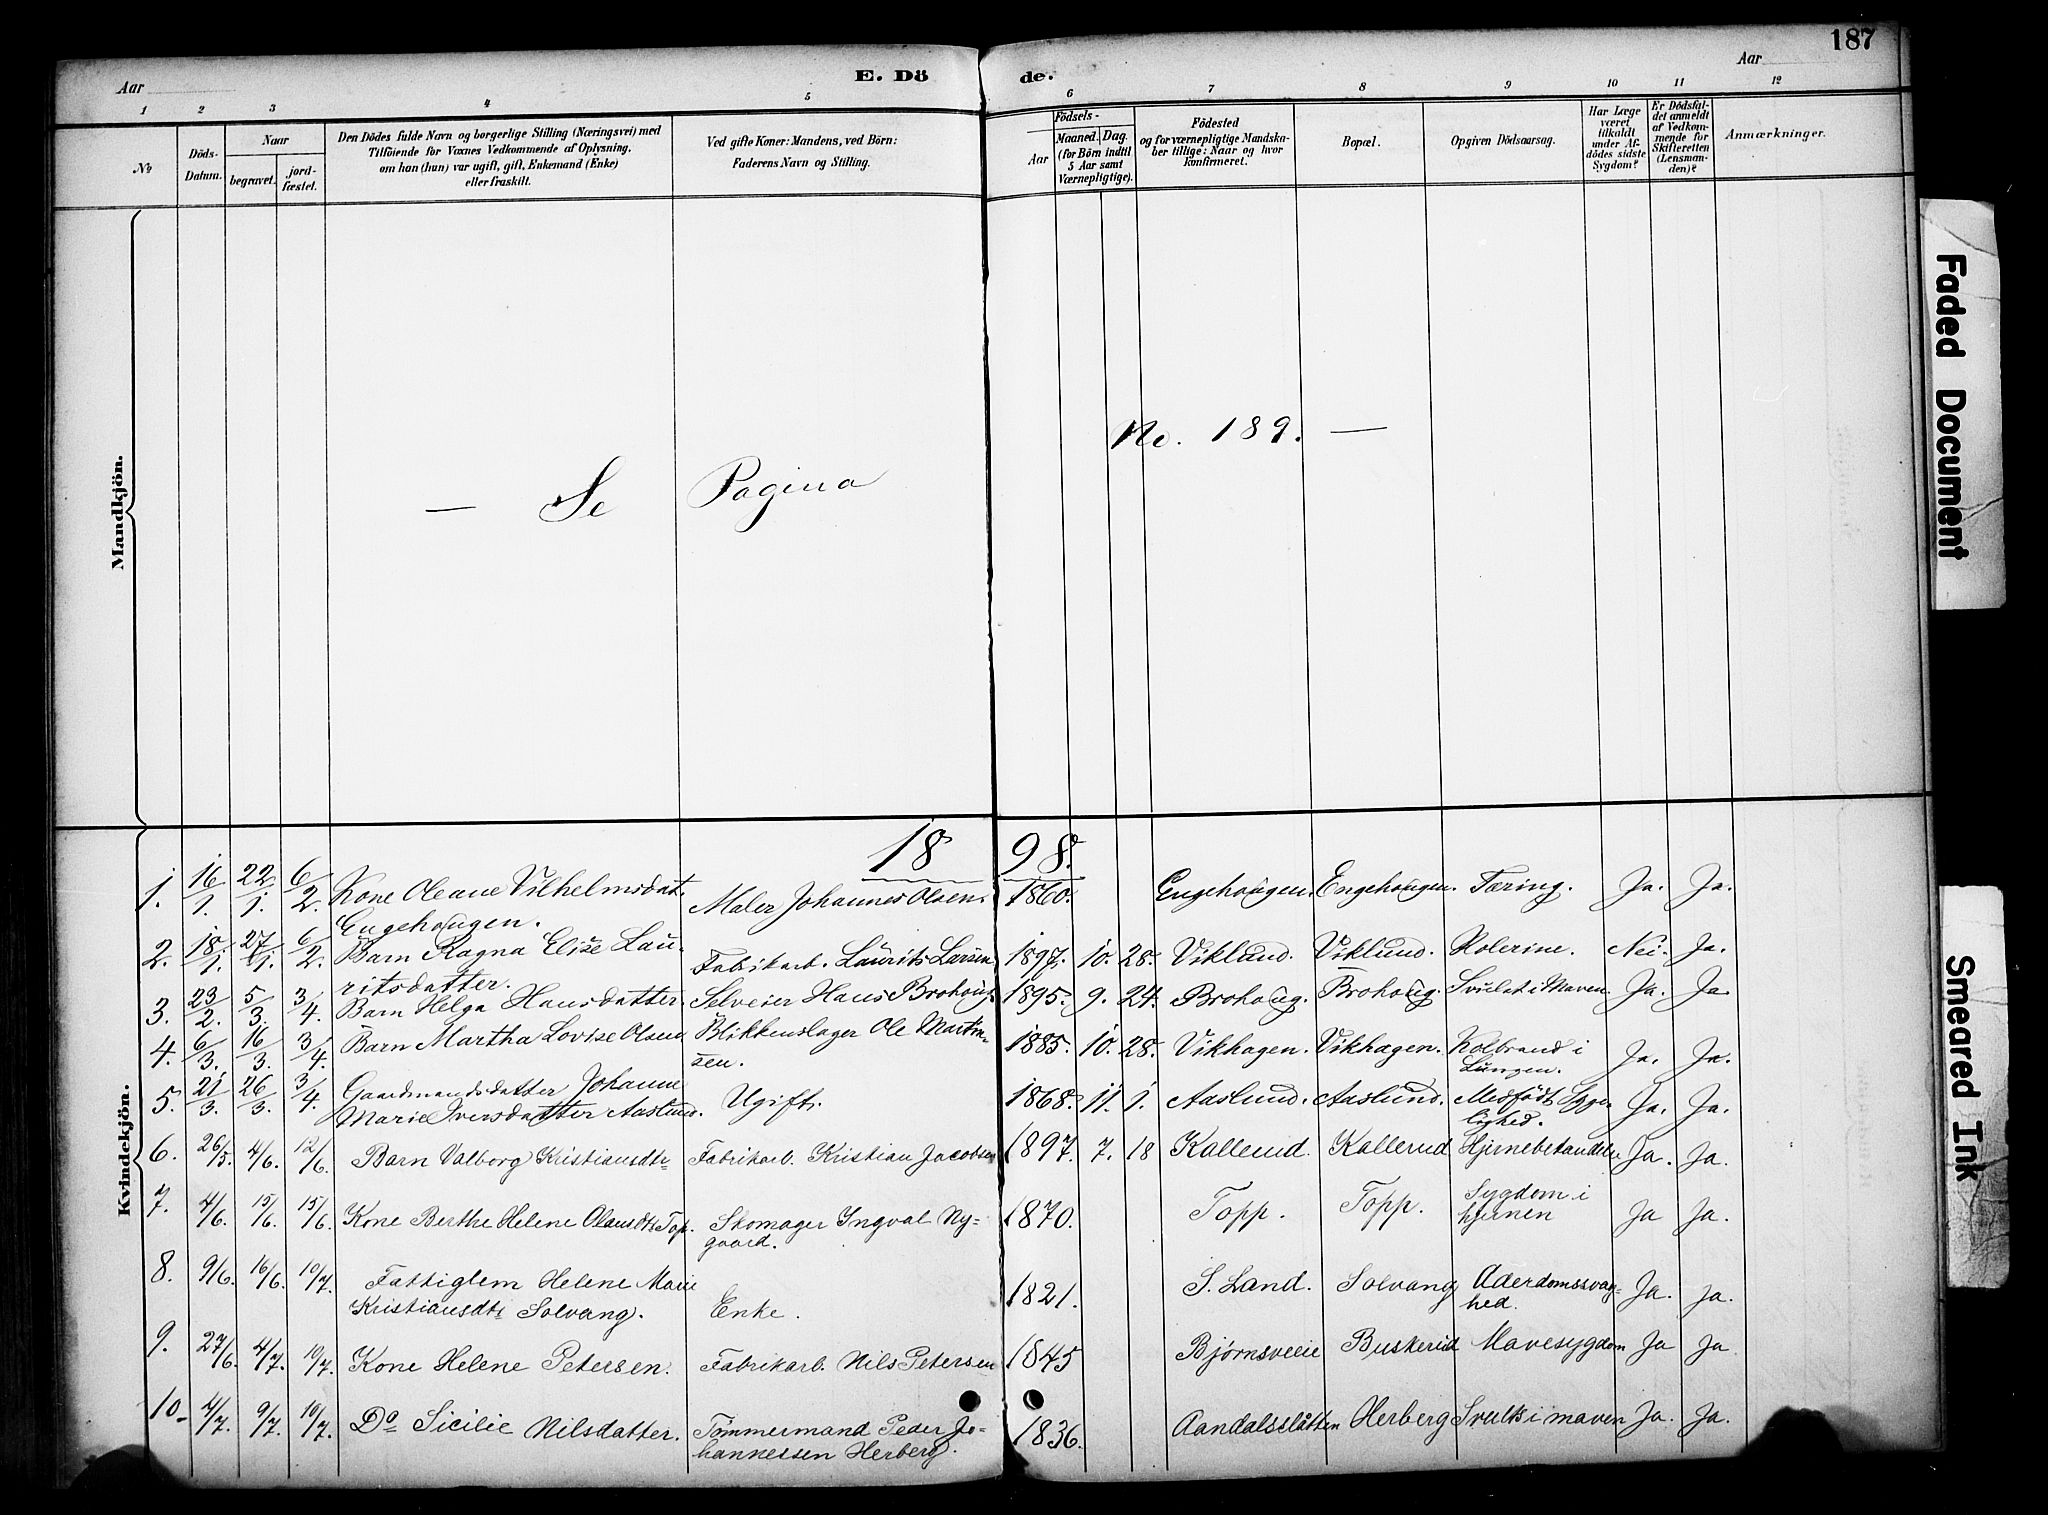 187
Aar
E. Dö
de.
Aar
1 2 3 4 5 6 7 8 9 10 11 12
No
Döds-
Datum.
Naar
begravet.
jord-
fæstet.
Den Dödes fulde Navn og borgerlige Stilling (Næringsvei) med
Tilföiende for Voxnes Vedkommende af Oplysning,
om han (hun) var ugift, gift, Enkemand (Enke)
eller fraskilt.
Ved gifte Koner: Mandens, ved Börn:
Faderens Navn og Stilling.
Födsels-
Aar
Maaned. Dag.
(for Börn indtil
5 Aar samt
Værnepligtige).
Födested
og for værnepligtige Mandska-
ber tillige: Naar og hvor
konfirmeret.
Bopæl.
Opgiven Dödsaarsag.
Har Læge
været
tilkaldt
under Af-
dödes sidste
Sygdom?
Er Dödsfal-
det anmeldt
af Vedkom-
mende for
Skifteretten
(Lensman-
den)?
Anmærkninger.
Mandkjön.
— Se Pagina No. 189. —
Kvindekjön.
1898.
1. 16/1. 22/1. 6/2. Kone Oleane Vilhelmsdat. Maler Johannes Olsen. 1860. Engehougen. Engehougen. Tæring. Ja. Ja.
Engehougen.
2. 18/1. 27/1. 6/2. Barn Ragna Elise Lau- Fabrikarb. Laurits Larsen 1897. 10. 28. Viklund. Viklund. Kolerine. Nei. Ja.
ritsdatter.
3. 23/2. 5/3. 3/4. Barn Helga Hansdatter Selveier Hans Brohoug 1895. 9. 24. Brohoug. Brohoug. Svulst i Maven. Ja. Ja.
4. 6/3. 16/3. 3/4. Barn Martha Lovise Olsen Blikkenslager Ole Martin- 1885. 10. 28. Vikhagen. Vikhagen. Kolbrand i Ja. Ja.
sen. Lungen.
5. 21/3. 26/3. 3/4. Gaardmandsdatter Johanne
Marie Iversdatter Aaslund. Ugift. 1868. 11. 1. Aaslund. Aaslund. Medfödt Syge- Ja. Ja.
lighed.
6. 26/5. 4/6. 12/6. Barn Valborg Kristiansdtr Fabrikarb. Kristian Jacobsen 1897. 7. 18 Kallerud Kallerud Hjernebetændelse Ja. Ja.
7. 4/6. 15/6. 15/6. Kone Berthe Helene Olausdtr Top. Skomager Ingval Ny- 1870. Topp. Topp. Sygdom i Ja Ja.
gaard. hjernen
8. 9/6. 16/6. 10/7. Fattiglem Helene Marie
Kristiansdtr Solvang. Enke. 1821. S. Land. Solvang Alderdomssvag- Ja. Ja.
hed.
9. 27/6. 4/7. 10/7. Kone Helene Petersen. Fabrikarb. Nils Petersen 1845 Bjørnsveie Buskerud Mavesygdom Ja Ja
10. 4/7. 9/7. 10/7. Do Sicilie Nilsdatter. Tömmermand Peder Jo- 1836. Aandalsslåtten Herberg Svulst i maven Ja. Ja.
hannessen Herberg.
Faded Document
Smeared Ink